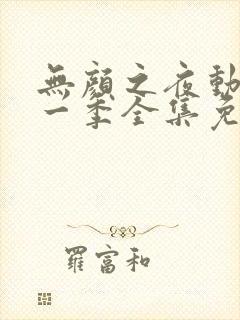 無顏之夜動
一季全集免
羅富和